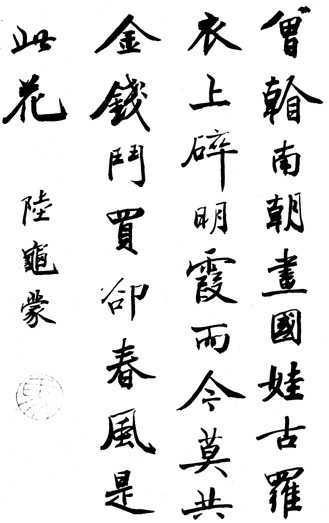 曾南朝畫國娃古羅
衣上碎明霞而今莫共
金錢鬥買卻春風是
此花
陸龜蒙